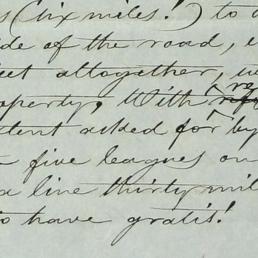 s (six miles!) to a
de of the road, i
eet altogether, w
operty, With re
tent asked for by
five leagues on
a line thirty mil
to have gratis!